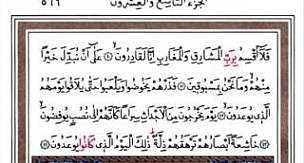 الجزء التاسع والعشرون ٥٦٩
فَلَا أُقْسِمُ بِرَبِّ الْمَشَارِقِ وَالْمَغَارِبِ إِنَّا لَقَادِرُونَ ۝ عَلَىٰ أَنْ نُبَدِّلَ خَيْرًا
مِنْهُمْ وَمَا نَحْنُ بِمَسْبُوقِينَ ۝ فَذَرْهُمْ يَخُوضُوا وَيَلْعَبُوا حَتَّىٰ يُلَاقُوا يَوْمَهُمُ
الَّذِي يُوعَدُونَ ۝ يَوْمَ يَخْرُجُونَ مِنَ الْأَجْدَاثِ سِرَاعًا كَأَنَّهُمْ إِلَىٰ نُصُبٍ يُوفِضُونَ ۝
خَاشِعَةً أَبْصَارُهُمْ تَرْهَقُهُمْ ذِلَّةٌ ذَٰلِكَ الْيَوْمُ الَّذِي كَانُوا يُوعَدُونَ ۝